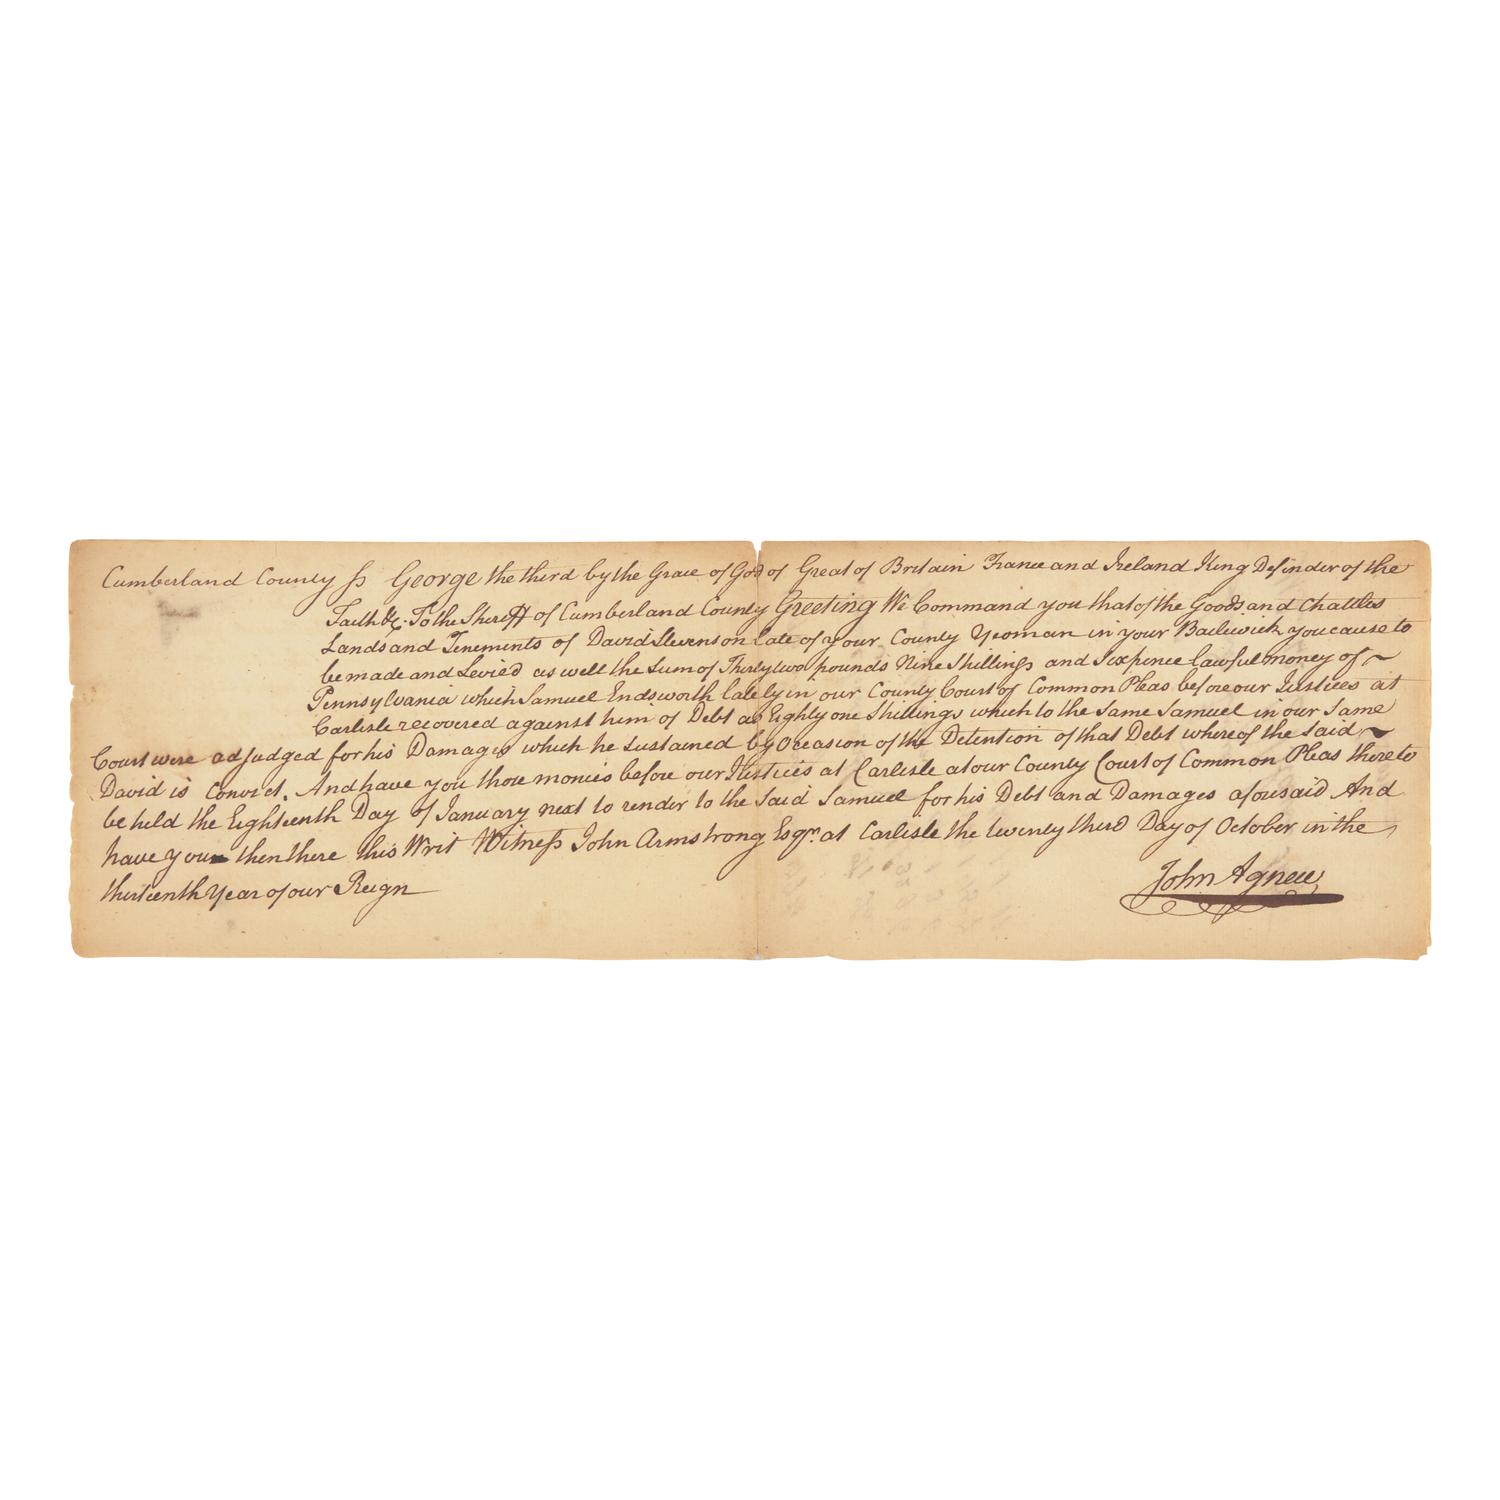 Cumberland County ss George the third by the Grace of God of Great of Britain France and Ireland King Defender of the
Faith &c. To the Sheriff of Cumberland County Greeting We Command you that of the Goods and Chattles
Lands and Tenements of David Stevenson late of your County Yeoman in your Bailiwick you cause to
be made and Levied as well the Sum of Thirty two pounds Nine Shillings and Sixpence lawful money of ~
Pennsylvania which Samuel Endsworth lately in our County Court of Common Pleas before our Justices at
Carlisle recovered against him of Debt as Eighty one Shillings which to the Same Samuel in our Same
Court were adjudged for his Damages which he sustained by Occasion of the Detention of that Debt whereof the Said ~
David is Convict. And have you those monies before our Justices at Carlisle at our County Court of Common Pleas there to
be held the Eighteenth Day of January next to render to the Said Samuel for his Debt and Damages aforesaid And
have you then there this Writ Witness John Armstrong Esqr. at Carlisle the twenty third Day of October in the
thirteenth Year of our Reign
John Agnew